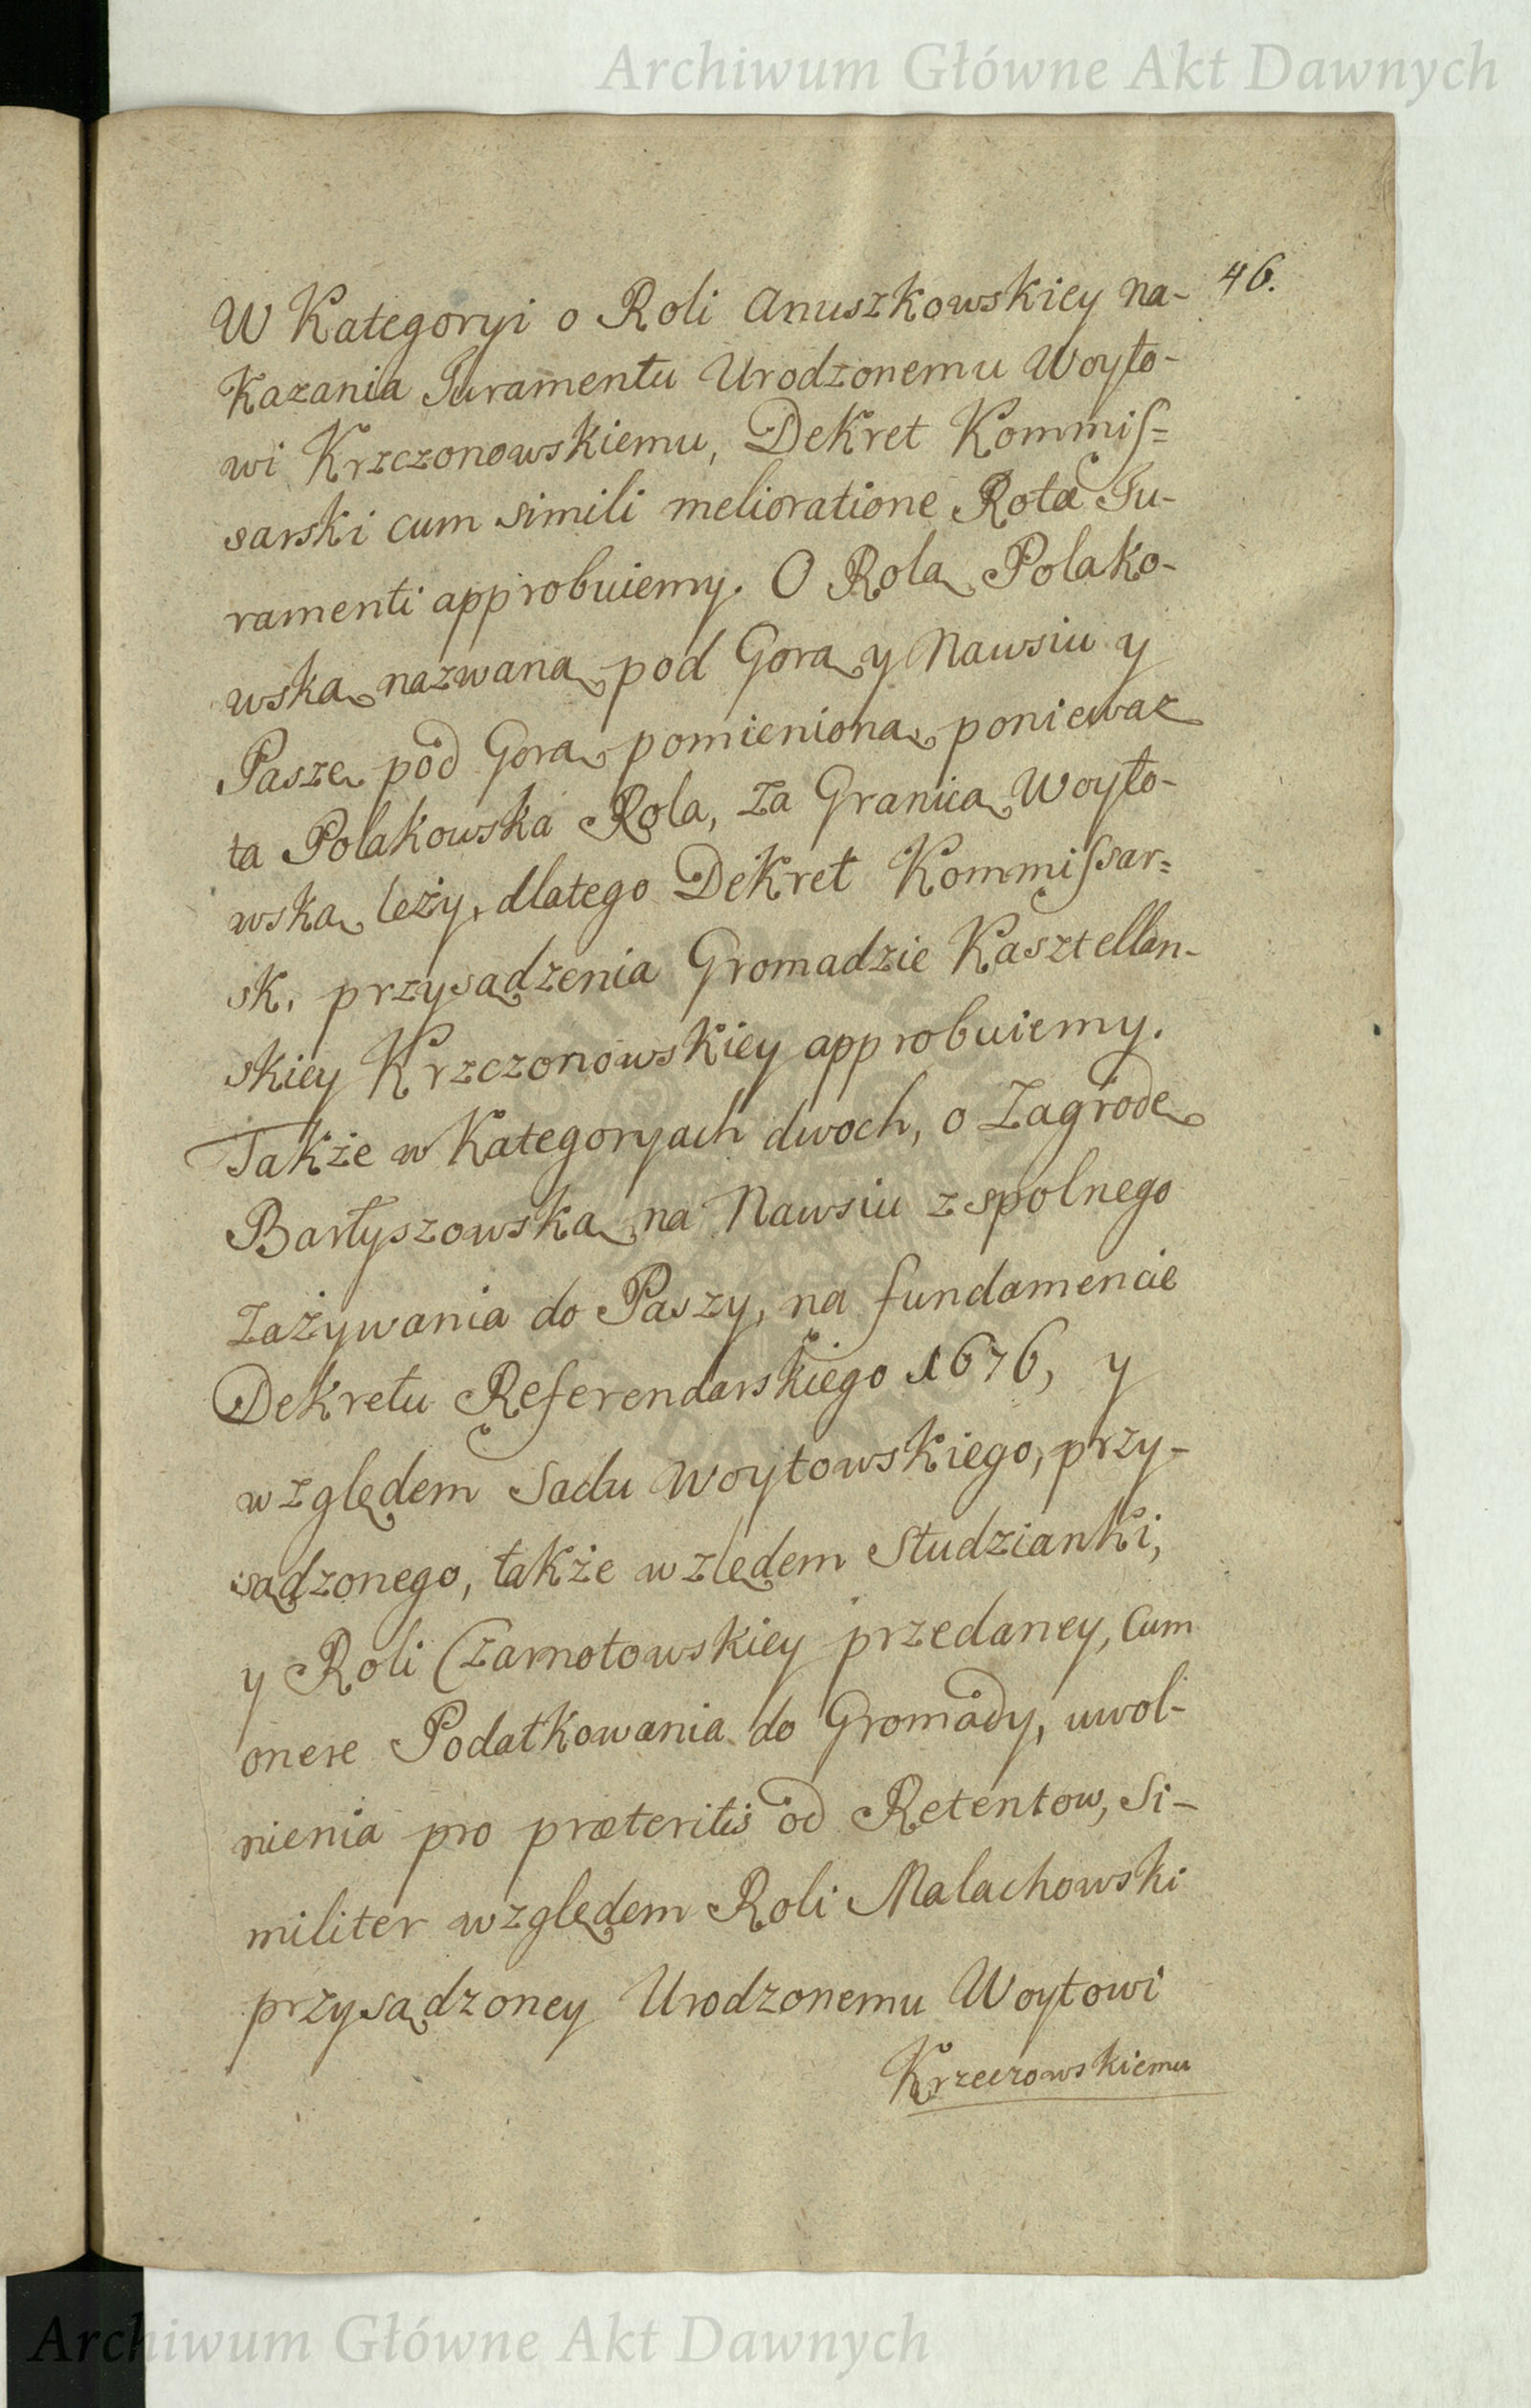 Archiwum Główne Akt Dawnych
46.
W Kategoryi o Roli Anuszkowskiey na-
kazania Juramentu Urodzonemu Woyto-
wi Krzczonowskiemu, Dekret Kommiſ=
sarski cum simili melioratione Rotæ Ju-
ramenti approbuiemy. O Rolą Polako-
wską nazwaną pod Gorą y Nawsiu y
Paszę pod Gorą pomienioną poniewaz
ta Polakowska Rola, za Granicą Woyto-
wską leży, dlatego Dekret Kommiſsar=
sk. przysądzenia Gromadzie Kasztellan-
skiey Krzczonowskiey approbuiemy.
Także w Kategoryach dwoch, o Zagrodę
Bartyszowską na Nawsiu zspolnego
zażywania do Paszy, na fundamencie
Dekretu Referendarskiego 1676, y
względem Sadu Woytowskiego, przy-
sądzonego, także wzlędem Studzianki,
y Roli Czarnotowskiey przedaney, Cum
onere Podatkowania do Gromady, uwol-
nienia pro præteritis od Retentow, Si-
militer względem Roli Malachowski
przysądzoney Urodzonemu Woytowi
Krzeczowskiemu
Archiwum Główne Akt Dawnych